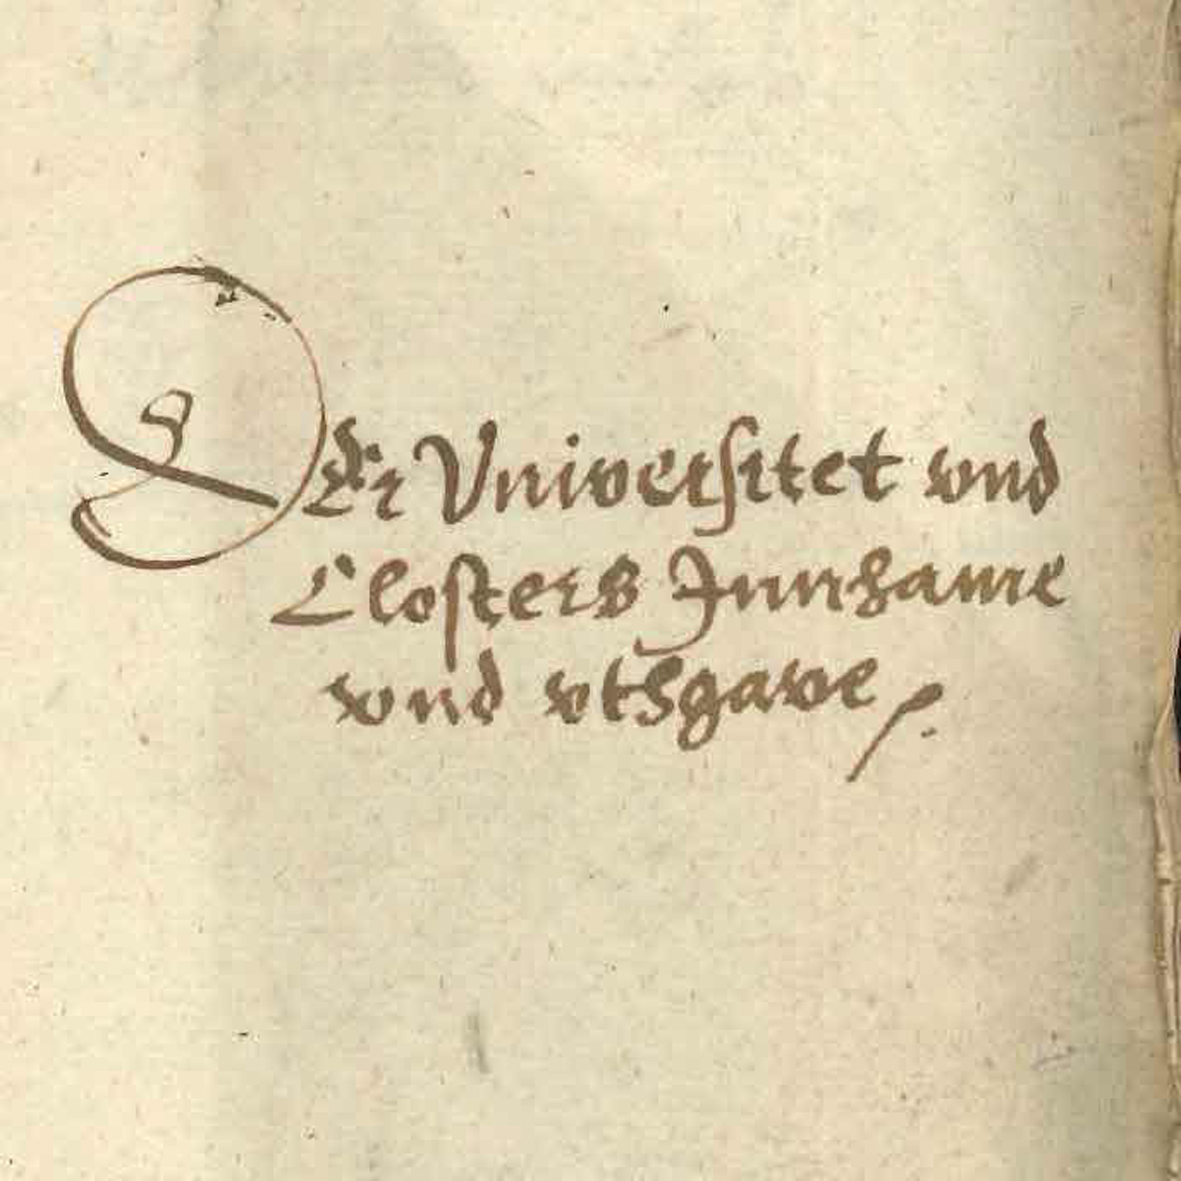 DEr Vniversitet vnd
Closters Innhame
vnd vthgave